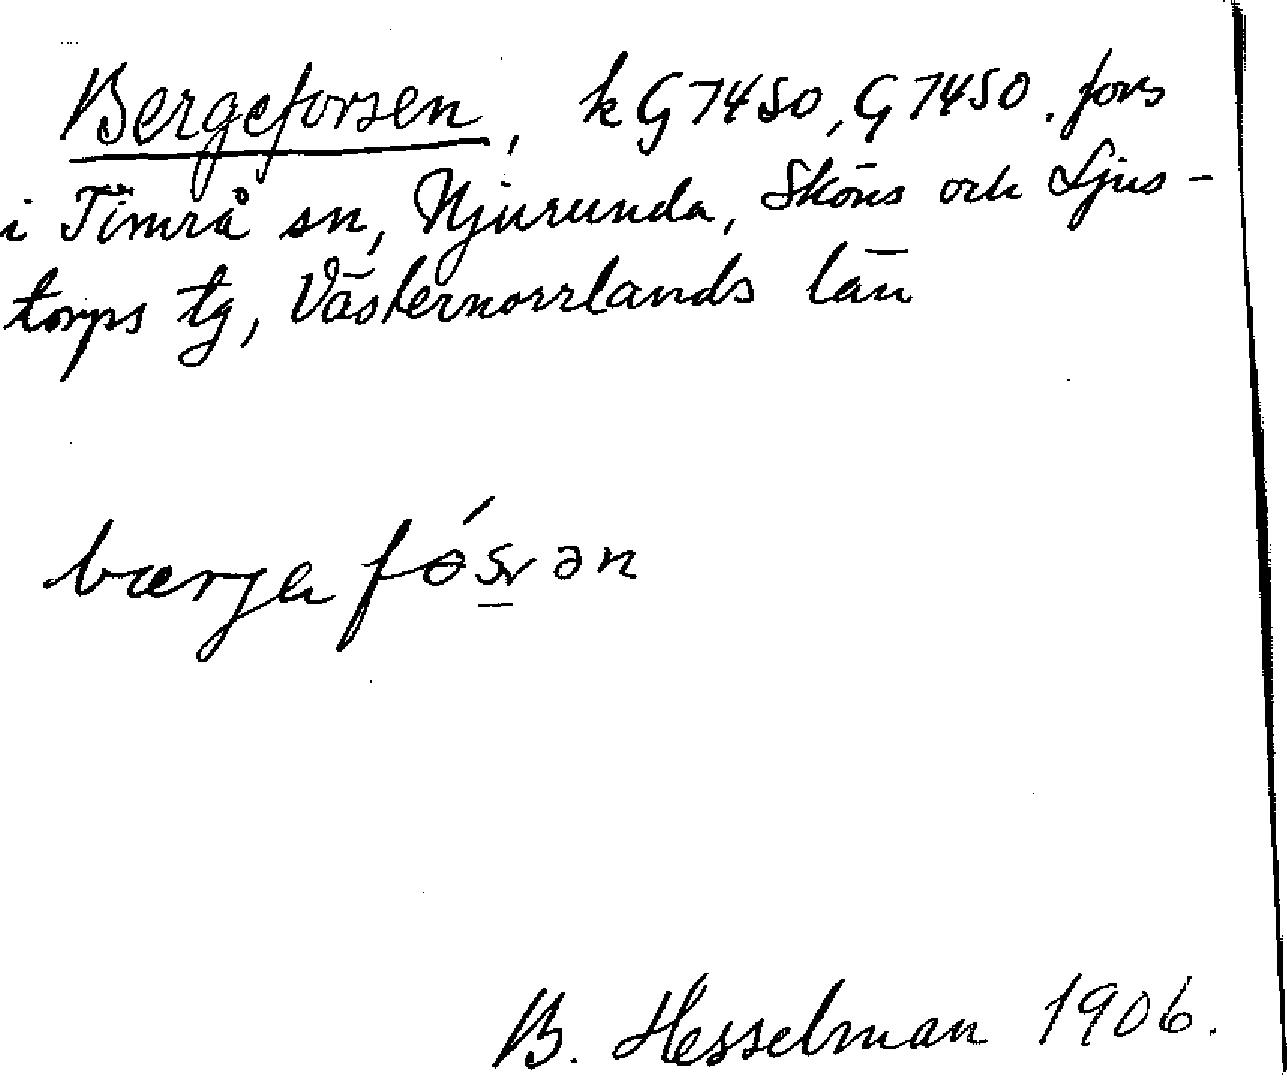 Bergeforsen, k G 7450, G 7450. fors
i Timrå sn, Njurunda, Sköns och Ljus-
torps tg, Västernorrlands län
bærgefósən
B. Hesselman 1906.